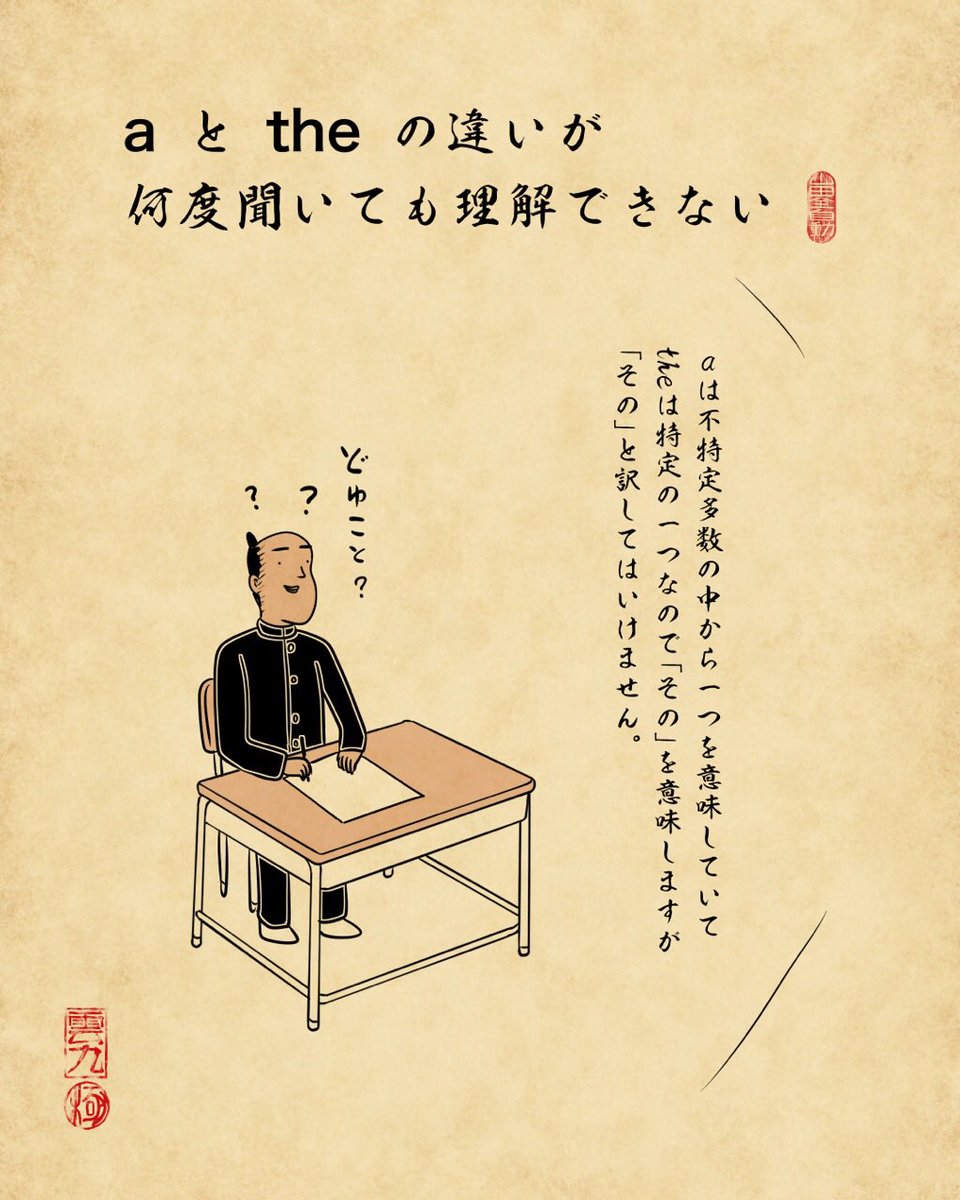 a と the の違いが
何度聞いても理解できない
aは不特定多数の中から一つを意味していて
theは特定の一つなので「その」を意味しますが
「その」と訳してはいけません。
? ?
どゆこと?